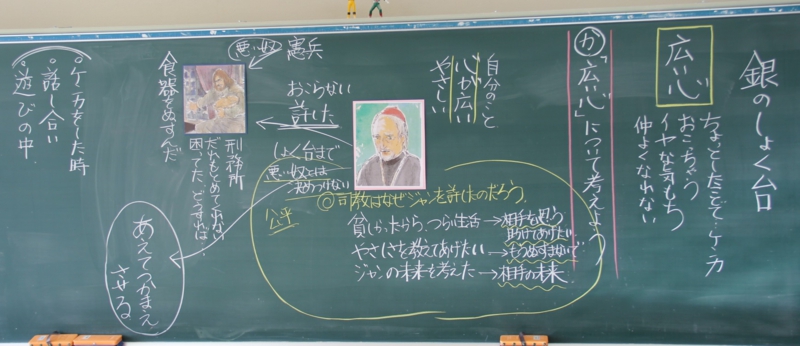 銀のしょく台
広い心
ちょっとしたことで・ケンカ
おこっちゃう
イヤな気もち
仲よくなれない
か「広い心」について考えよう
自分のこと
心が広い
やさしい
悪い奴 憲兵
おこらない
許した
しょく台まで
悪い奴とは
決めつけない
食器をぬすんだ
刑務所
だれもとめてくれない
困ってた、どうすれば…
◎司教はなぜジャンを許したのだろう。
公平
貧しかったから、つらい生活→相手を思う
助けてあげたい
やさしさを教えてあげたい→もうぬすまないで
ジャンの未来を考えた→相手の未来
あえてつかまえ
させる
。ケンカをした時
。話し合い
。遊びの中。